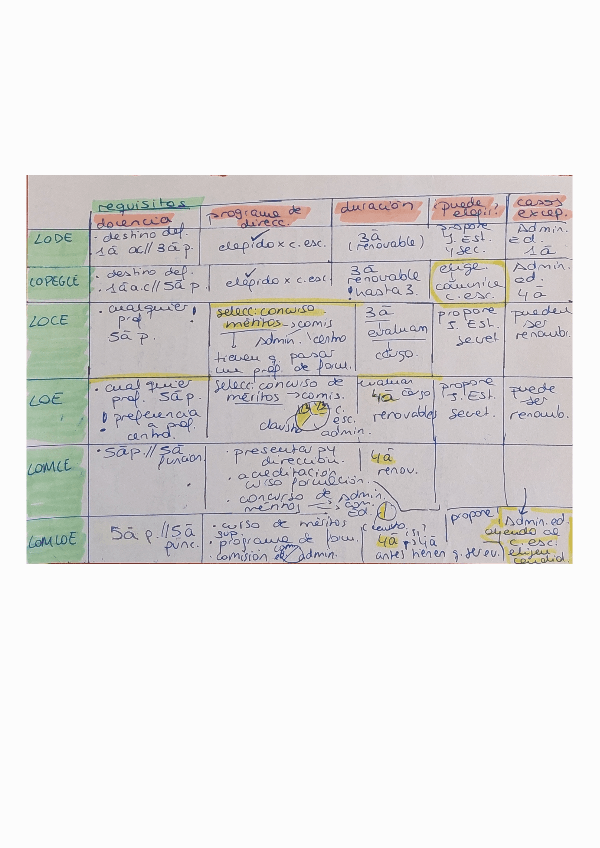 requisitos
docencia
programa de
direcc.
duración
¿puede
elegir?
casos
excep.
LODE
· destino def.
1ā ac // 3ā p.
elegido x c. esc.
3ā
(renovable)
propone
J. Est.
y sec.
Admin.
Ed.
1ā
COPEGCE
· destino def.
· 1ā a.c // 5ā p.
elegido x c. esc
3ā
renovable
hasta 3.
elige.
comunica
c. esc.
Admin.
ed.
4ā
LOCE
· cualquier
prof
5ā p.
selecc: concurso
méritos → comis
admin. centro
tienen q pasar
un prog. de form.
3ā
evaluam
cargo.
propone
J. Est.
secret
pueden
ser
renomb.
LOE
· cualquier
prof. 5ā p.
· preferencia
a prof.
centro.
selecc: concurso de
méritos → comis.
claustro
c.
esc.
admin.
evaluan
4ā cargo
renovables
propone
J. Est.
secret.
puede
ser
renomb.
LOMCE
· 5ā p. // 5ā
funcion.
· presentar py
dirección.
· acreditación
curso formación.
· concurso de
méritos → com
Admin.
Ed.
4ā
renov.
LOMLOE
5ā p. // 5ā
func.
· curso de méritos
sup.
· programa de form.
comisión admin.
claustro
4ā
antes tienen q. ser ev.
propone
Admin. ed.
oyendo al
c. esc.
elijen
candid.